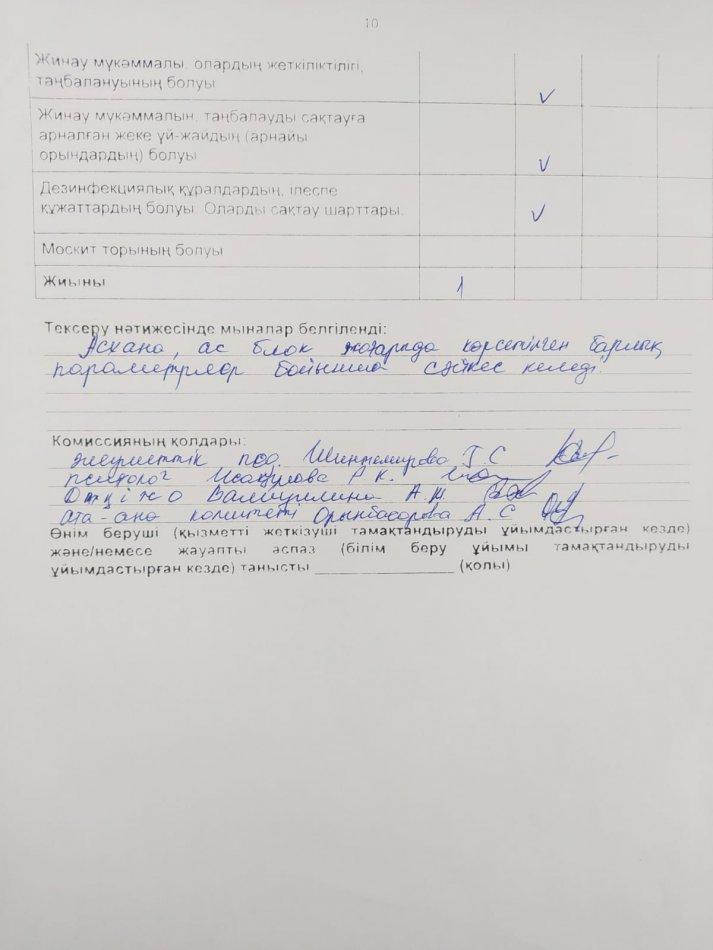 10
Жинау мүкәммалы, олардың жеткіліктілігі,
таңбалануының болуы
✓
Жинау мүкәммалын, таңбалауды сақтауға
арналған жеке үй-жайдың (арнайы
орындардың) болуы
✓
Дезинфекциялық құралдардың, ілеспе
құжаттардың болуы. Оларды сақтау шарттары.
✓
Москит торының болуы
Жиыны
1
Тексеру нәтижесінде мыналар белгіленді:
Асхана, ас блок жоғарыда көрсетілген барлық
параметрлер бойынша сәйкес келеді.
Комиссияның қолдары:
пед. Шинтемирова Г С
психолог Исақулова Р К.
А.М
ата-ана комитеті Орынбасарова А. С
Өнім беруші (қызметті жеткізуші тамақтандыруды ұйымдастырған кезде)
және/немесе жауапты аспаз (білім беру ұйымы тамақтандыруды
ұйымдастырған кезде) танысты ____________________ (қолы)